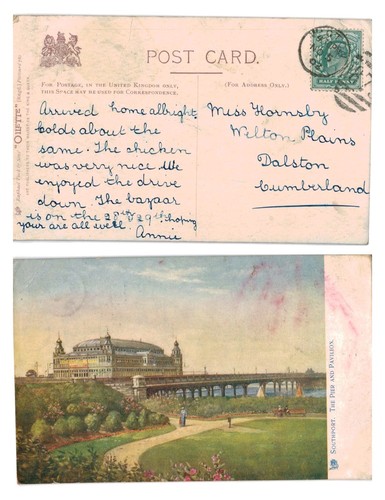 POST CARD.
FOR POSTAGE, IN THE UNITED KINGDOM ONLY,
THIS SPACE MAY BE USED FOR CORRESPONDENCE.
(FOR ADDRESS ONLY.)
Arrived home albright,
Colds about the
same. The chicken
was very nice. We
enjoyed the drive
down. The bazaar
is on the 28th 29th, hoping
your are all well.
Annie
Miss Hornsby
Welton Plains
Dalston
Cumberland
"OILETTE"
SOUTHPORT. THE PIER AND PAVILION.